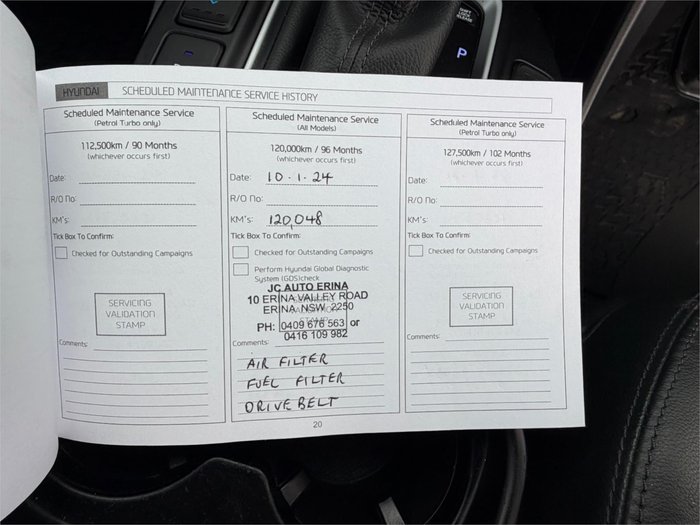 SHIFT
LOCK
RELEASE
P
HYUNDAI SCHEDULED MAINTENANCE SERVICE HISTORY
Scheduled Maintenance Service
(Petrol Turbo only)
112,500km / 90 Months
(whichever occurs first)
Date:
R/O No:
KM's:
Tick Box To Confirm:
Checked for Outstanding Campaigns
SERVICING
VALIDATION
STAMP
Comments:
Scheduled Maintenance Service
(All Models)
120,000km / 96 Months
(whichever occurs first)
Date: 10.1.24
R/O No:
KM's: 120,048
Tick Box To Confirm:
Checked for Outstanding Campaigns
Perform Hyundai Global Diagnostic
System (GDS)check
JC AUTO ERINA
10 ERINA VALLEY ROAD
ERINA NSW 2250
PH: 0409 676 563 or
0416 109 982
Comments:
AIR FILTER
FUEL FILTER
DRIVE BELT
Scheduled Maintenance Service
(Petrol Turbo only)
127,500km / 102 Months
(whichever occurs first)
Date:
R/O No:
KM's:
Tick Box To Confirm:
Checked for Outstanding Campaigns
SERVICING
VALIDATION
STAMP
Comments:
20